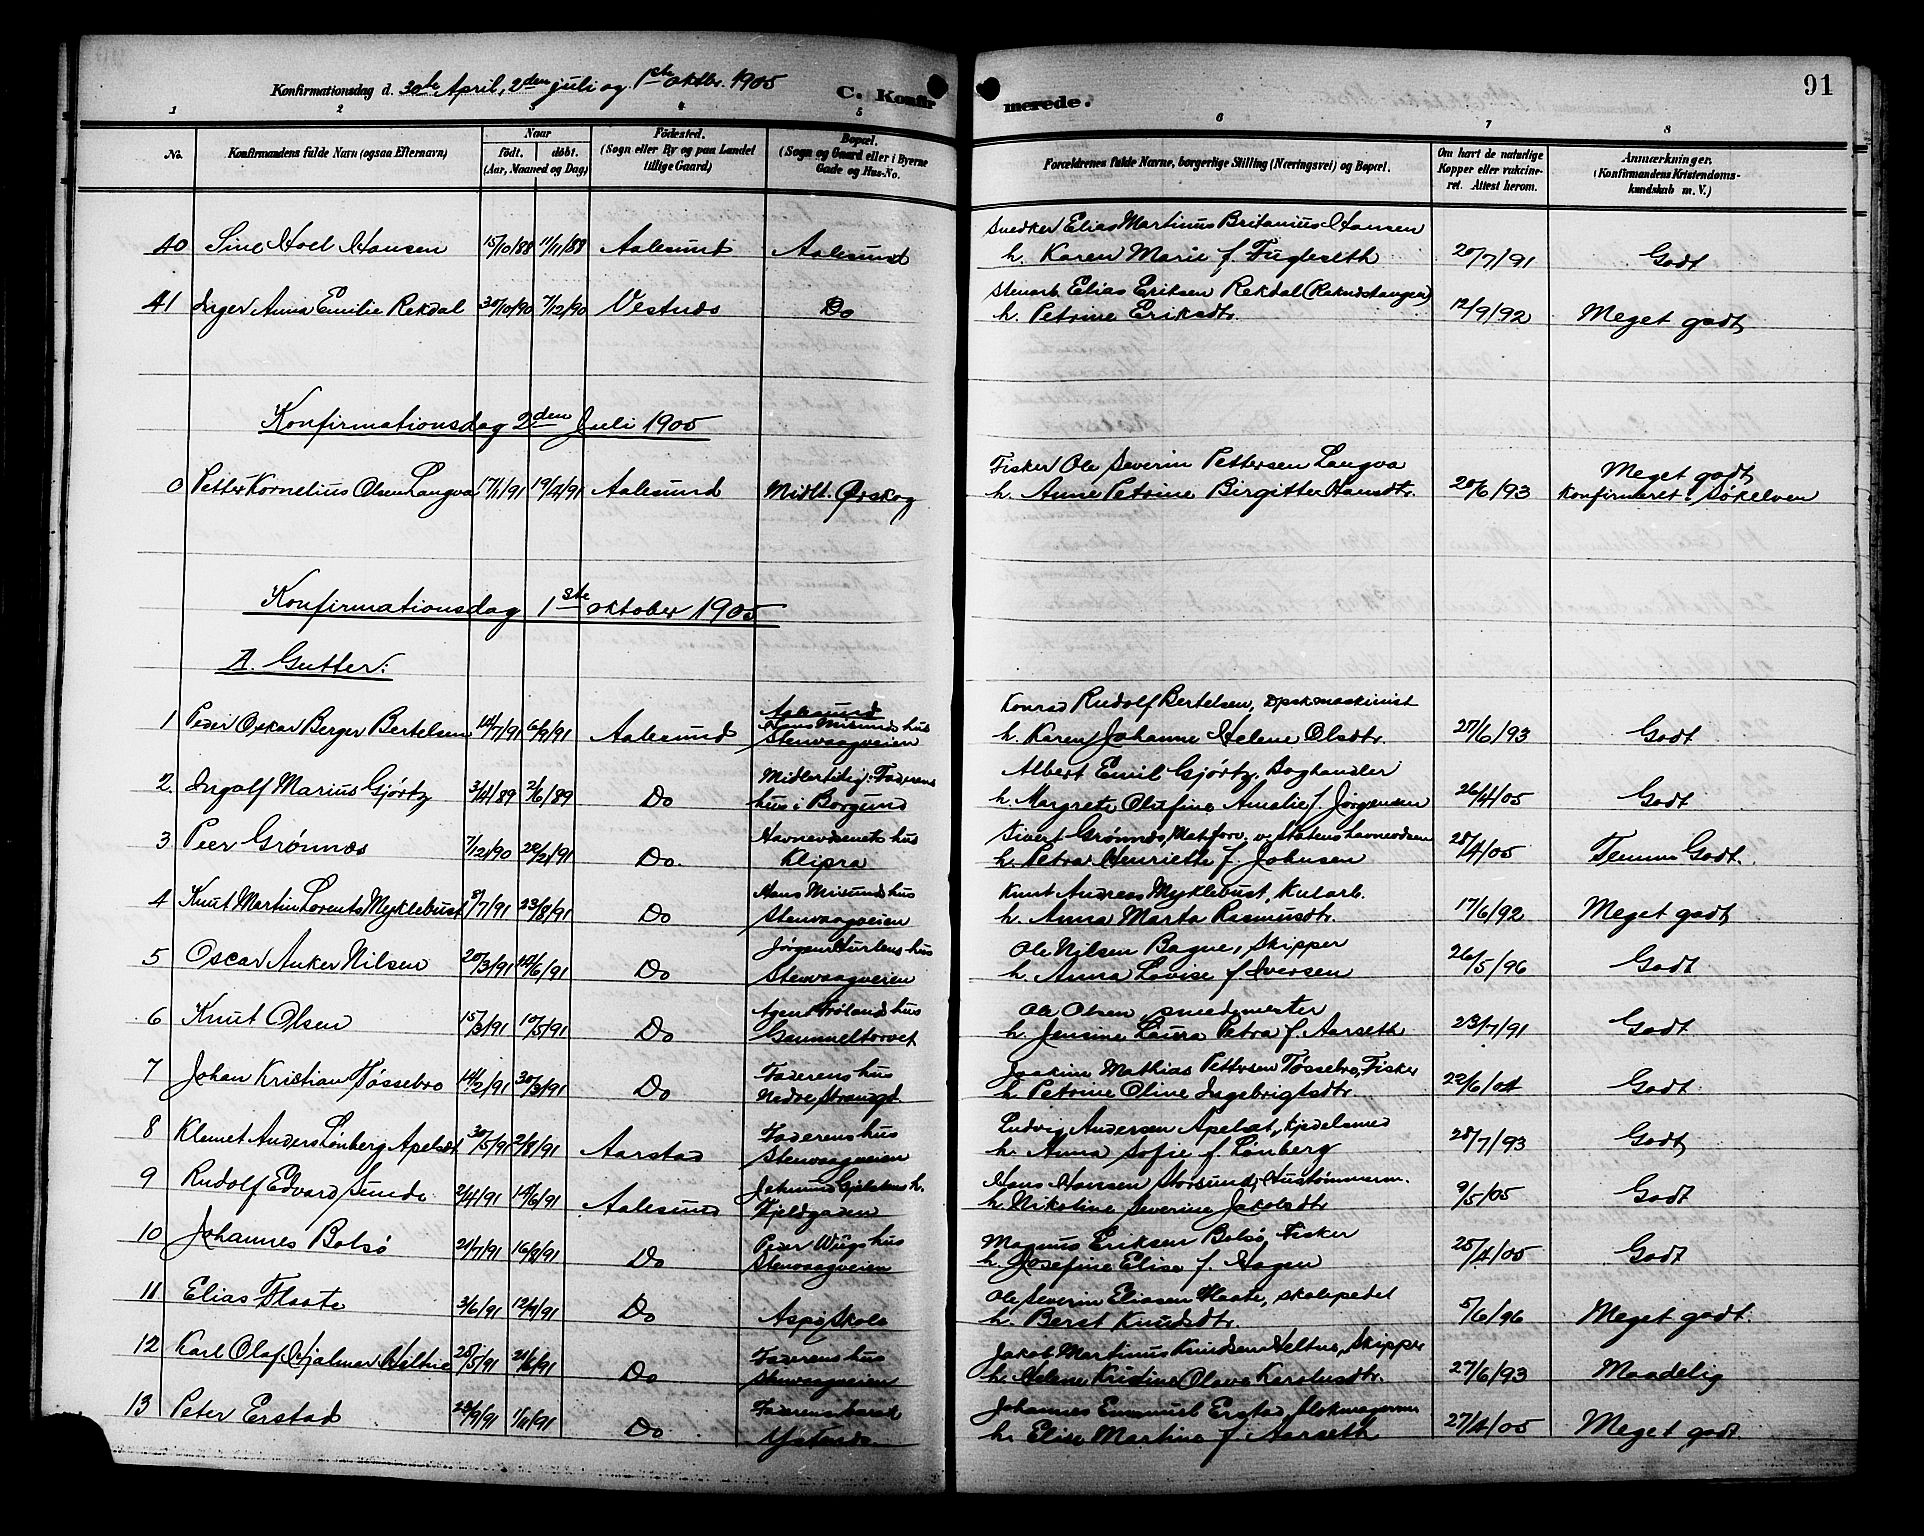 Konfirmationsdag d. 30te April, 2den juli og 1ste oktbr. 1905
C. Konfir
merede.
91
1 2 3 4 5 6 7 8
No.
Konfirmandens fulde Navn (ogsaa Efternavn)
Naar
født. døbt.
(Aar, Maaned og Dag)
Fødested.
(Sogn eller By og paa Landet
tillige Gaard)
Bopæl.
(Sogn og Gaard eller i Byerne
Gade og Hus-No.
Forældrenes fulde Navne, borgerlige Stilling (Næringsvei) og Bopæl.
Om havt de naturlige
Kopper eller vakcine-
ret. Attest herom.
Anmærkninger,
(Konfirmandens Kristendoms-
kundskab m. V.)
Snedker Elias Martinus Britanius Hansen
40 Sine Hoel Hansen 15/10/88 11/11/88 Aalesund Aalesund h. Karen Marie f. Fugleseth 20/7/91 Godt
Stenarb. Elias Eriksen Rekdal
41 Inger Anna Emilie Rekdal 30/10/90 7/12/90 Vestnes Do h. Petrine Eriksdtr. 12/9/92 Meget godt
Konfirmationsdag 2den Juli 1905
Fisker Ole Severin Pettersen Langva Meget godt
0 Petter Kornelius Olsen Langva 17/1/91 19/4/91 Aalesund Midlt. Ørskog h. Anne Petrine Birgitte Hansdtr. 20/6/93 Konfirmeret i Søkelven
Konfirmationsdag 1ste oktober 1905
A. Gutter:
Aalesund Konrad Rudolf Bertelsen, Dpsk.maskinist
1 Peder Oskar Berger Bertelsen 14/7/91 6/9/91 Aalesund Hans Misunds hus
Stenvaagveien h. Karen Johanne Helene Olsdtr. 27/6/93 Godt
Midlertidig: Faderens Albert Emil Gjørtz, Boghandler
2. Ingolf Marius Gjørtz 3/4/89 2/6/89 Do hus i Borgund h. Margrete Olufine Amalie f. Jørgensen 26/4/05 Godt
Havnevæsenets hus Sivert Grønnes, Mat.forv. v. Statens havnevæsen
3 Peer Grønnes 7/12/90 22/2/91 Do. Klipra h. Petra Henriette f. Johnsen 28/4/05 Temm. Godt.
Hans Misunds hus Knut Andreas Myklebust, Kularb.
4 Knut Martin Lorents Myklebust 8/7/91 23/8/91 Do Stenvaagveien h. Anna Marta Rasmusdtr. 17/6/92 Meget godt
Ole Nilsen Bagne, Skipper
5 Oscar Anker Nilsen 20/3/91 14/6/91 Do Stenvaagveien h. Anna Lovise f. Iversen 26/5/96 Godt
Agent hus Ole Olsen, smedmester
6 Knut Olsen 15/3/91 10/5/91 Do Gammeltorvet h. Jensine Laura Petra f. Aarseth 23/7/91 Godt
Faderens hus Joakim Mathias Pettersen Tøssebro, Fisker
7 Johan Kristian Tøssebro 14/2/91 30/3/91 Do Nedre Strandgd h. Petrine Oline Ingebrigtsdtr. 22/6/04 Godt
Faderens hus Ludvig Andersen Apelsæt, Kjedelsmed
8 Klemet Anders Lønberg Apelsæt 30/5/91 2/8/91 Aarstad Stenvaagveien h. Anna Sofie f. Lønberg 28/7/93 Godt
Hans Hansen Storsund, Hustømmerm.
9 Rudolf Edvard Sunde 2/4/91 14/6/91 Aalesund Kjeldgaden h. Nikoline Severine Jakobsdtr. 9/5/05 Godt
Peder Wiigs hus Magnus Eriksen Bolsø, Fisker
10 Johannes Bolsø 21/7/91 16/8/91 Do Stenvaagveien h. Josefine Elise f. Hagen 25/4/05 Godt
Ole Severin Eliasen Flaate, skolepedel
11 Elias Flaate 3/6/91 12/7/91 Do Aspø Skole h. Berst Knudsdtr. 5/6/96 Meget godt.
Faderens hus Jakob Martinus Knudsen Heltne, Skipper
12 Karl Olaf Hjalmar Heltne 28/5/91 21/6/91 Do Stenvaagveien h. Helene Kristine Olava Karolusdtr. 27/6/93 Maadelig
Faderens Johannes Emanuel Erstad
13 Peter Erstad 28/9/91 1/11/91 Do h. Elise Martine f. Aarseth 27/4/05 Meget godt.